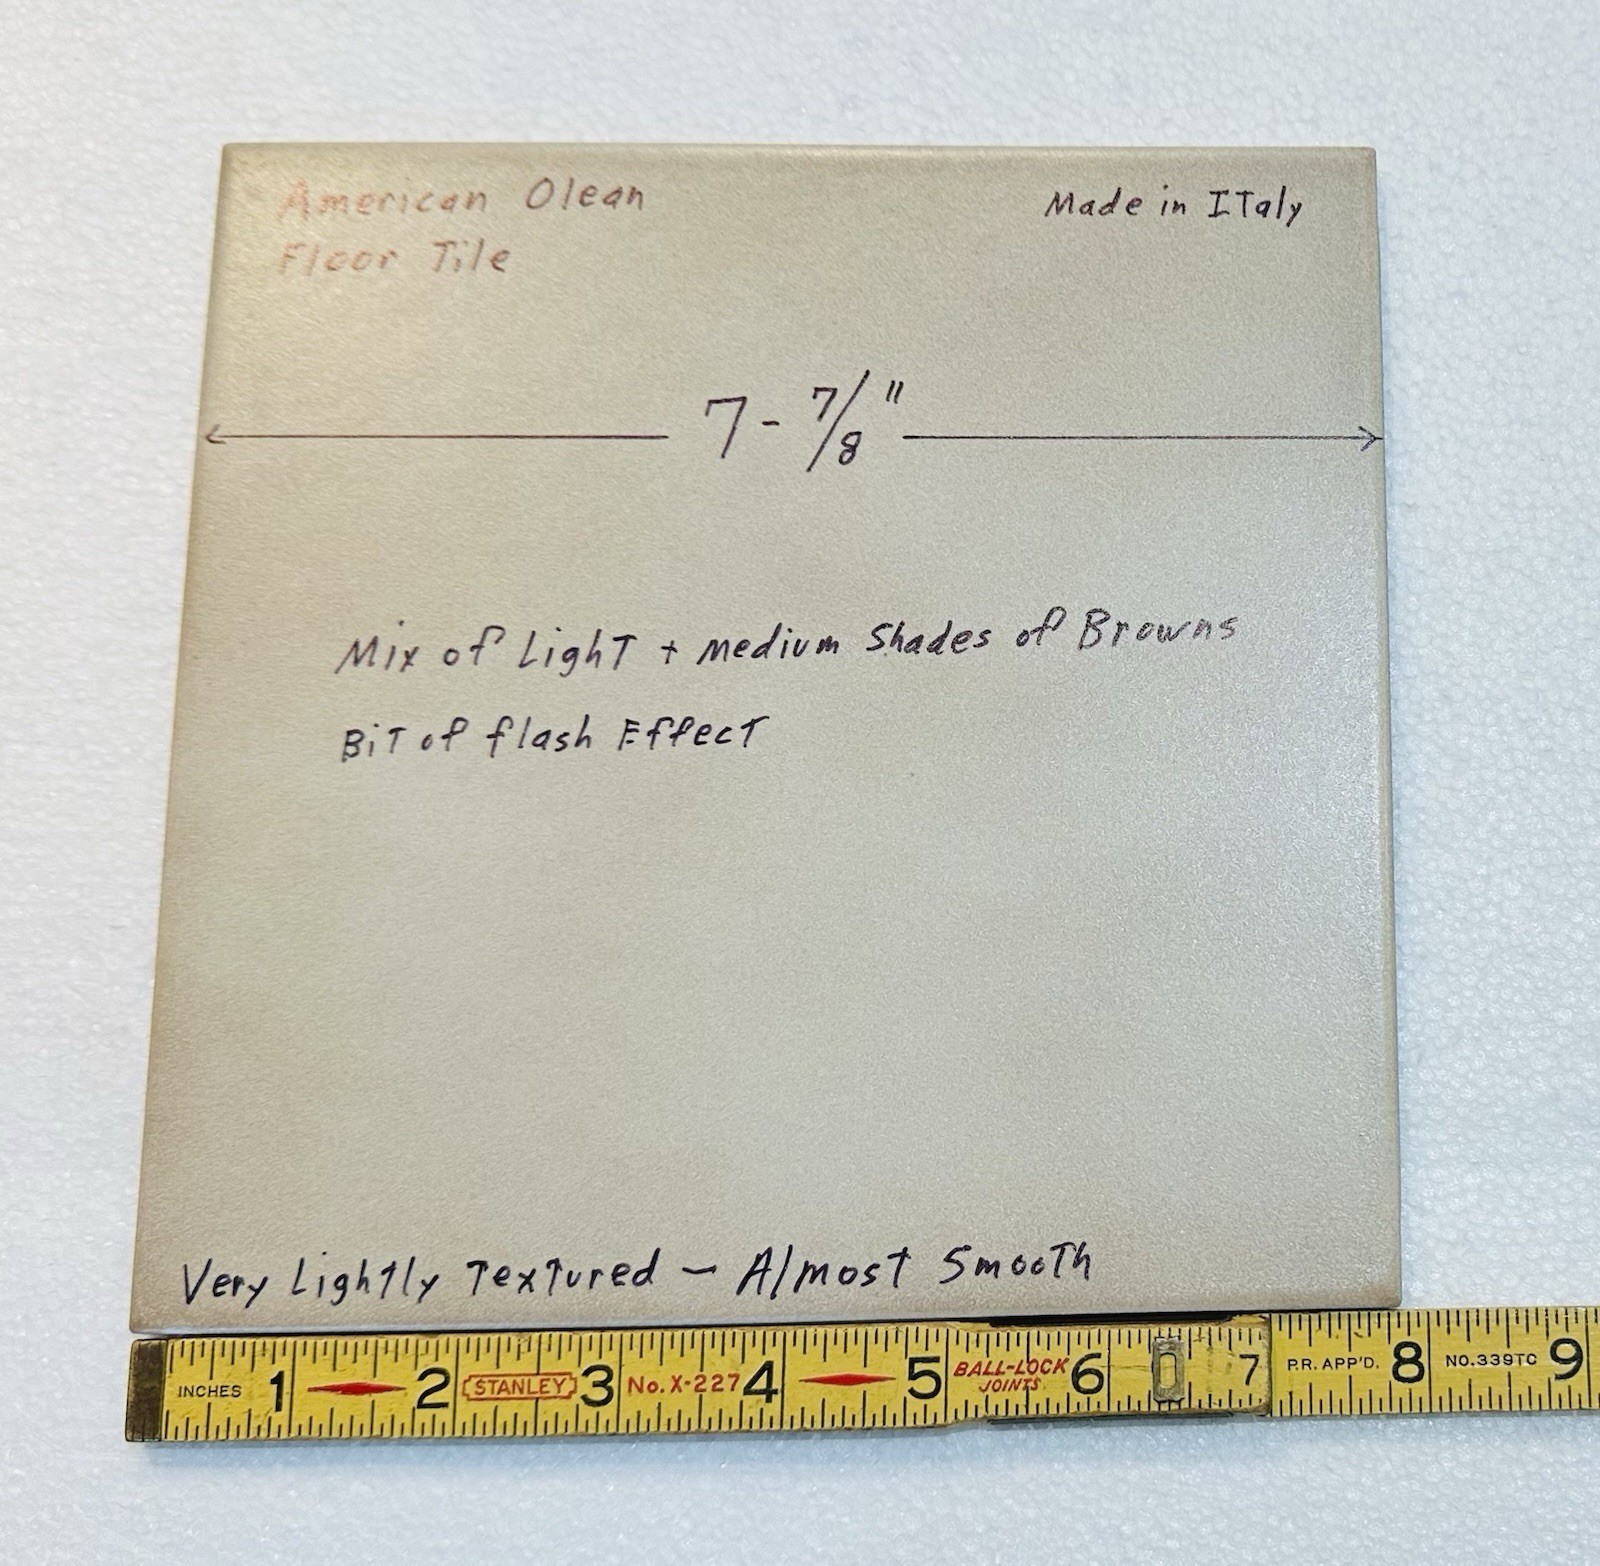 American Olean
Floor Tile
Made in ITaly
7-7/8"
Mix of LighT + medium Shades of Browns
BiT of flash EffecT
Very Lightly Textured - Almost SmooTh
INCHES 1 2 STANLEY 3 No. X-227 4 5 BALL-LOCK JOINTS 6 7 P.R. APP'D. 8 NO.339TC 9